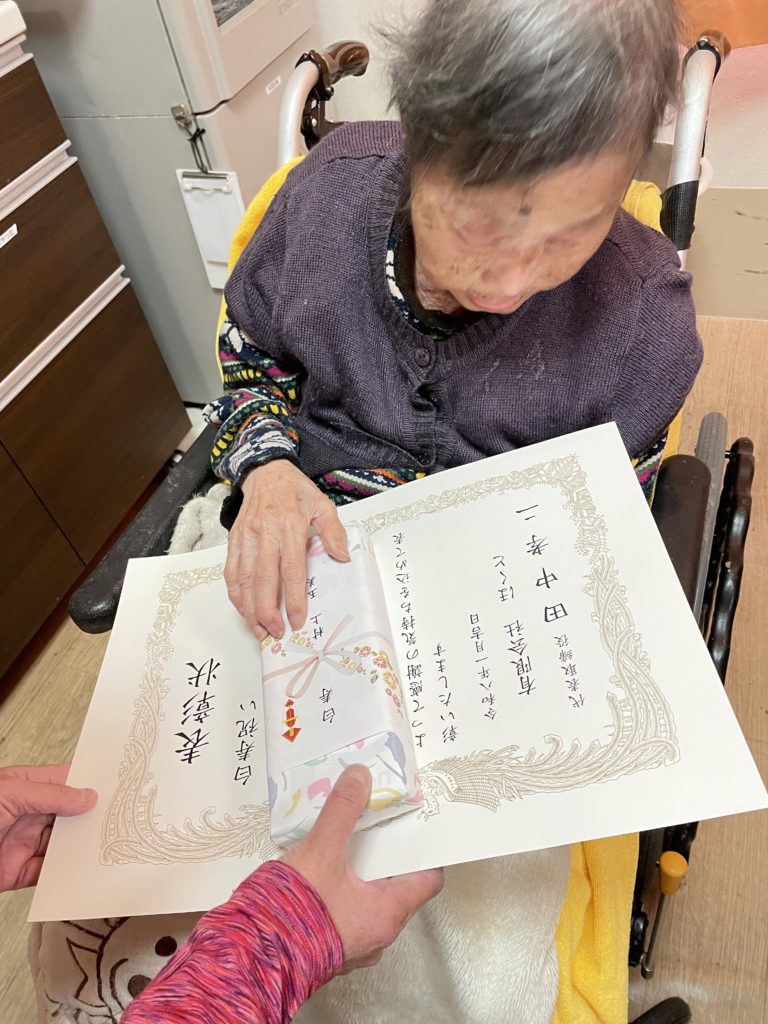 表彰状
白寿祝い
よって感謝の気持ちを込めて表
彰いたします
令和八年一月吉日
有限会社 ほくと
代表取締役 田中孝二
白寿
村上 玉美